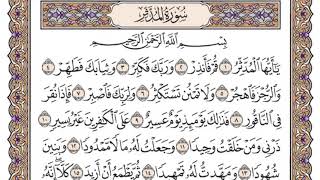 سُورَةُ المُدَّثِّر
بِسْمِ اللَّهِ الرَّحْمَٰنِ الرَّحِيمِ
يَٰٓأَيُّهَا الْمُدَّثِّرُ ١ قُمْ فَأَنذِرْ ٢ وَرَبَّكَ فَكَبِّرْ ٣ وَثِيَابَكَ فَطَهِّرْ ٤
وَالرُّجْزَ فَاهْجُرْ ٥ وَلَا تَمْنُن تَسْتَكْثِرُ ٦ وَلِرَبِّكَ فَاصْبِرْ ٧ فَإِذَا نُقِرَ
فِي النَّاقُورِ ٨ فَذَٰلِكَ يَوْمَئِذٍ يَوْمٌ عَسِيرٌ ٩ عَلَى الْكَٰفِرِينَ غَيْرُ يَسِيرٍ ١٠
ذَرْنِي وَمَنْ خَلَقْتُ وَحِيدًا ١١ وَجَعَلْتُ لَهُۥ مَالًا مَّمْدُودًا ١٢ وَبَنِينَ
شُهُودًا ١٣ وَمَهَّدتُّ لَهُۥ تَمْهِيدًا ١٤ ثُمَّ يَطْمَعُ أَنْ أَزِيدَ ١٥ كَلَّآ إِنَّهُۥ